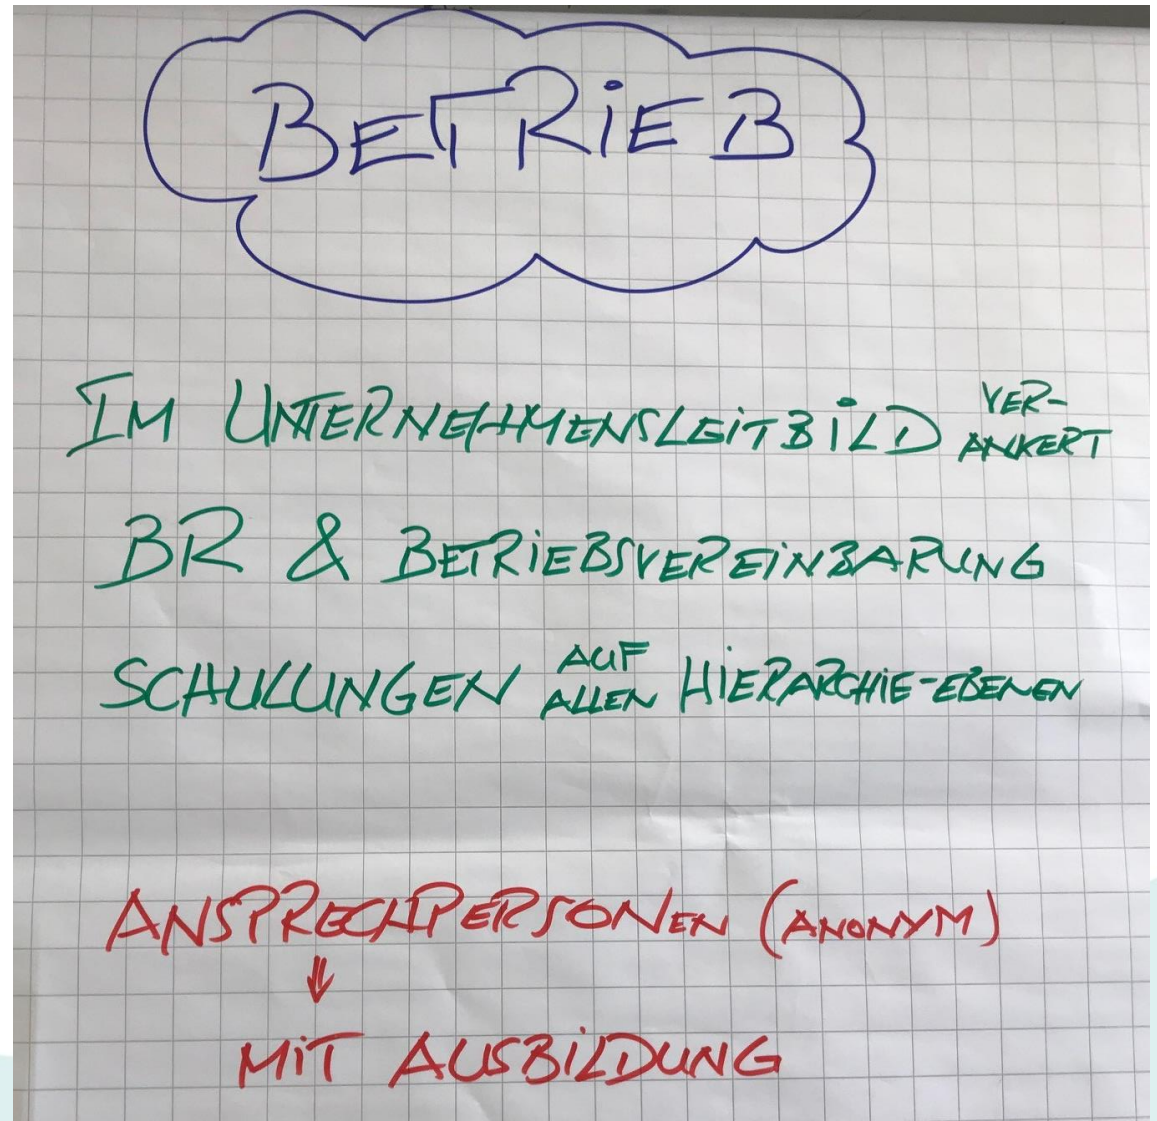 BETRIEB
IM UNTERNEHMENSLEITBILD VER-
ANKERT
BR & BETRIEBSVEREINBARUNG
SCHULUNGEN AUF
ALLEN HIERARCHIE-EBENEN
ANSPRECHPERSONEN (ANONYM)
⇓
MIT AUSBILDUNG